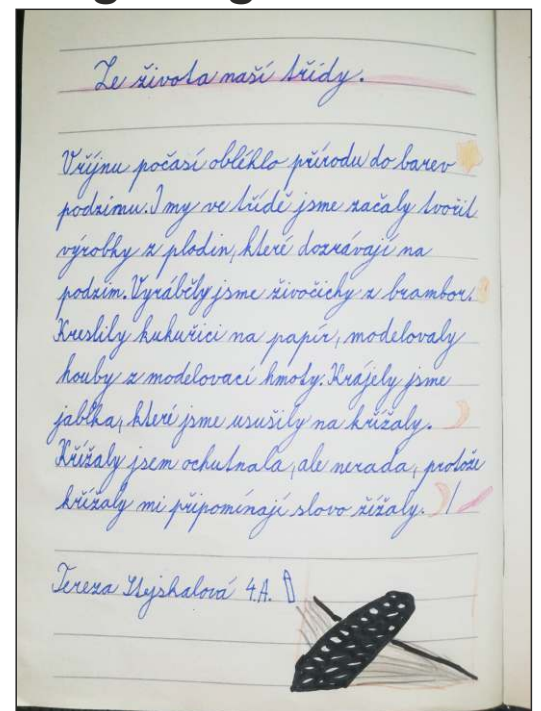 Ze života naší třídy.
V říjnu počasí obléklo přírodu do barev
podzimu. I my ve třídě jsme začaly tvořit
výrobky z plodin, které dozrávají na
podzim. Vyráběly jsme živočichy z brambor.
Kreslily kukuřici na papír, modelovaly
houby z modelovací hmoty. Krájely jsme
jablka, které jsme usušily na křížaly.
Křížaly jsem ochutnala, ale nerada, protože
křížaly mi připomínají slovo žížaly.
Tereza Stejskalová 4.A.